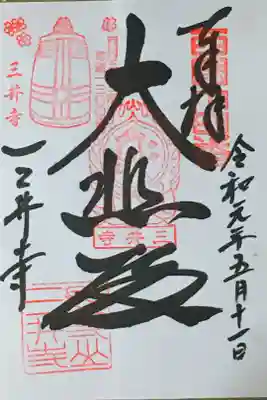 奉拝
令和元年五月十一日
大悲殿
三井寺
三井寺
三井寺